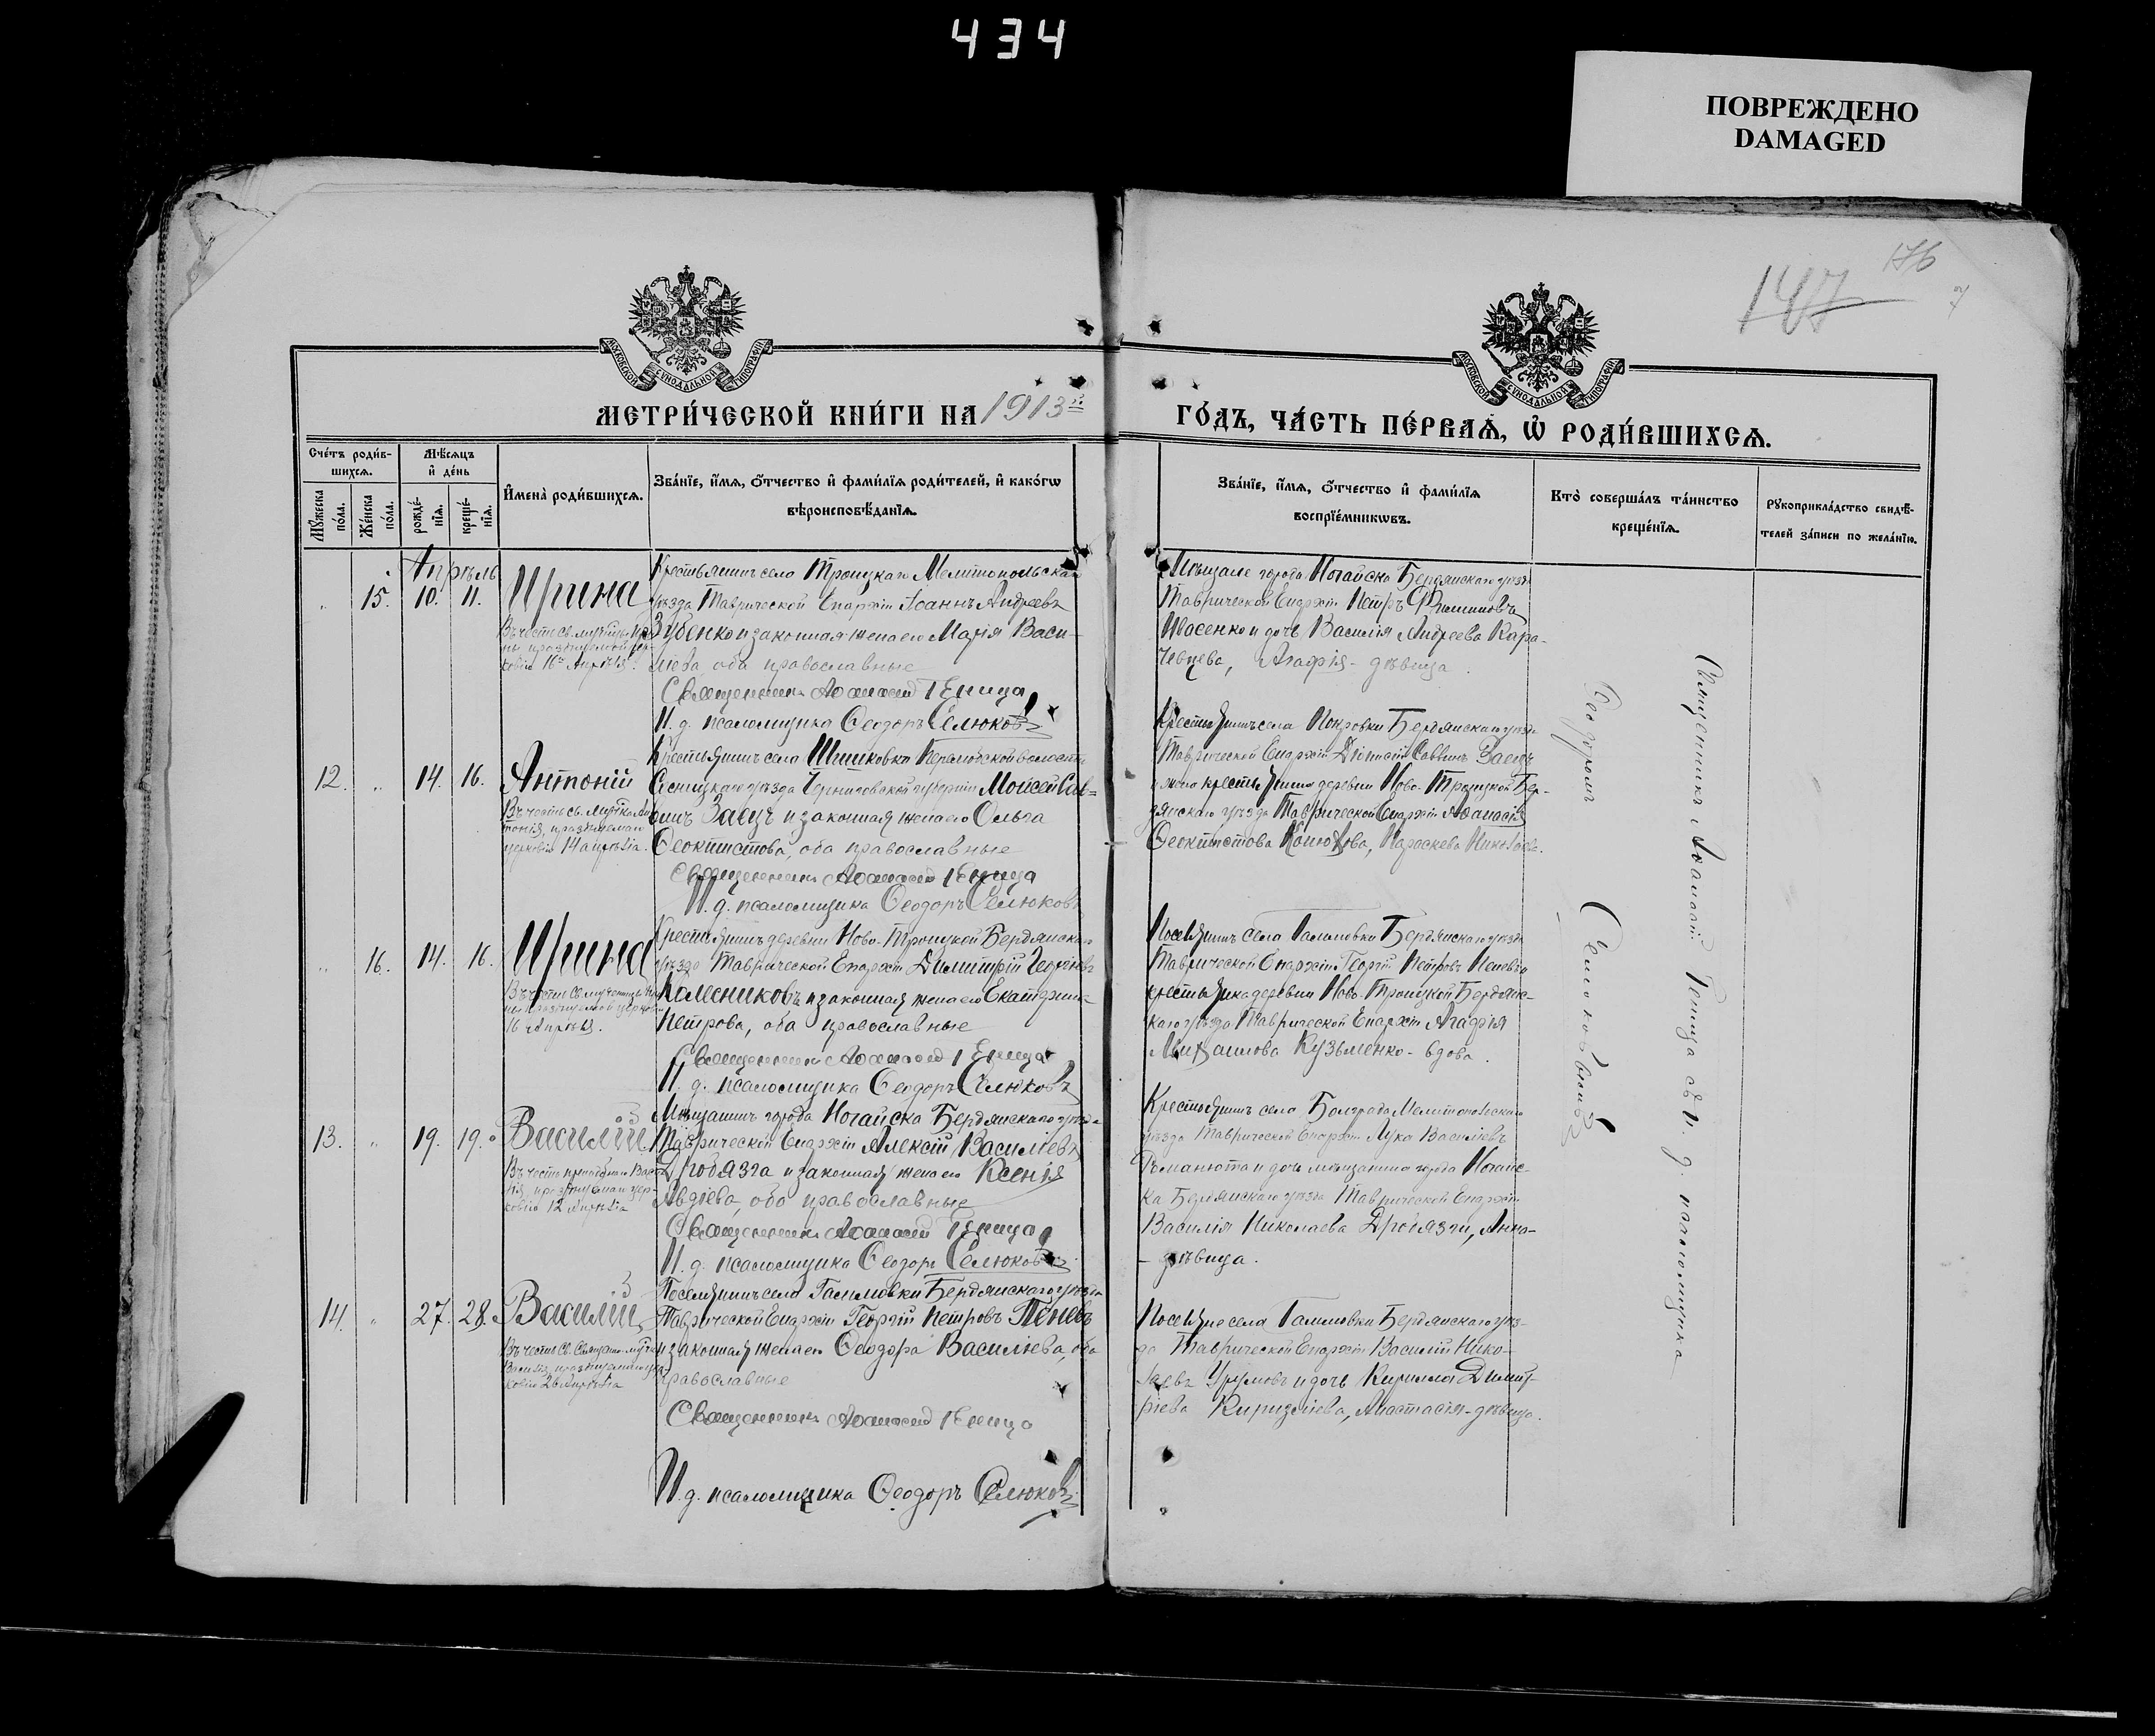 434
ПОВРЕЖДЕНО
DAMAGED
176
147
МОСКОВСКОЙ СѴНОДАЛЬНОЙ ТИПОГРАФІИ
МОСКОВСКОЙ СѴНОДАЛЬНОЙ ТИПОГРАФІИ
МЕТРИ́ЧЕСКОЙ КНИ́ГИ НА 1913 г.
ГО́ДЪ, ЧА́СТЬ ПЕ́РВАѦ, Ѿ РОДИ́ВШИХСѦ.
Счетъ роди́в-
шихсѧ.
Мѣсѧцъ
и де́нь
Мꙋжеска
по́ла.
Же́нска
по́ла.
рожде́-
нїѧ.
креще́-
нїѧ.
Имена̀ роди́вшихсѧ.
Зва́нїе, и́мѧ, ѻ́тчество и фами́лїѧ роди́телей, и како́гѡ
вѣроисповѣ́данїѧ.
Зва́нїе, и́мѧ, ѻ́тчество и фами́лїѧ
воспрїе́мникѡвъ.
Кто̀ соверша́лъ та́инство
креще́нїѧ.
Рꙋкоприкла́дство свидѣ́-
телей за́писи по жела́нїю.
Апрѣль
„ 15. 10. 11. Ирина
Въ честь св. мучцы Ири-
ны празднуемой цер-
ковію 16го Апрѣля.
Крестьянинъ села Троицкаго Мелитопольскаго
уѣзда Таврической Епархіи Іоаннъ Андреевъ
Зубенко и законная жена его Марія Васи-
ліева оба православные
Священникъ Аѳанасій Геница
И. д. псаломщика Ѳеодоръ Селюковъ
Мѣщане города Ногайска Бердянскаго уѣзда
Таврической Епархіи Петръ Филипповъ
Ивасенко и дочь Василія Андреева Кара-
чевцева, Агафія - дѣвица.
12. „ 14. 16. Антоній
Въ честь св. мучка Ан-
тонія, празднуемаго
церковію 14 апрѣля.
Крестьянинъ села Шишковки волости
Сосницкаго уѣзда Черниговской губерніи Моисей Сав-
винъ Заецъ и законная жена его Ольга
Ѳеоктистова, оба православные
Священникъ Аѳанасій Геница
И. д. псаломщика Ѳеодоръ Селюковъ
Крестьянинъ села Покровки Бердянскаго уѣзда
Таврической Епархіи Діонисій Саввинъ Заецъ
и жена крестьянина деревни Ново-Троицкой Бер-
дянскаго уѣзда Таврической Епархіи Аѳанасія
Ѳеоктистова Конюхова, Параскева Николаева.
„ 16. 14. 16. Ирина
Въ честь св. мученицы Ири-
ны празднуемой церковію
16 Апрѣля.
Крестьянинъ деревни Ново-Троицкой Бердянскаго
уѣзда Таврической Епархіи Димитрій Георгіевъ
Колесниковъ и законная жена его Екатерина
Петрова, оба православные
Священникъ Аѳанасій Геница
И. д. псаломщика Ѳеодоръ Селюковъ
Поселянинъ села Гамовки Бердянскаго уѣзда
Таврической Епархіи Георгій Петровъ Пеневъ и
крестьянка деревни Ново-Троицкой Бердянс-
каго уѣзда Таврической Епархіи Агафія
Михаилова Кузьменко - вдова.
13. „ 19. 19. Василій
Въ честь преподобнаго Васи-
лія, празднуемаго цер-
ковію 12 Апрѣля
Мѣщанинъ города Ногайска Бердянскаго уѣзда
Таврической Епархіи Алексій Васильевъ
Дробязга и законная жена его Ксенія
Авдіева, оба православные
Священникъ Аѳанасій Геница
И. д. псаломщика Ѳеодоръ Селюковъ
Крестьянинъ села Болграда Мелитопольскаго
уѣзда Таврической Епархіи Лука Василіевъ
Романюта и дочь мѣщанина города Ногайс-
ка Бердянскаго уѣзда Таврической Епархіи
Василія Николаева Дробязги, Анна-
- дѣвица.
14. „ 27. 28. Василій
Въ честь св. священно-муч.
Василія, празднуемаго цер-
ковію 26 Апрѣля
Поселянинъ села Гамовки Бердянскаго уѣзда
Таврической Епархіи Георгій Петровъ Пеневъ
и законная жена его Ѳеодора Василіева, оба
православные
Священникъ Аѳанасій Геница
И. д. псаломщика Ѳеодоръ Селюковъ
Поселяне села Гамовки Бердянскаго уѣз-
да Таврической Епархіи Василій Нико-
лаевъ Урумовъ и дочь Кирилла Димит-
ріева Анастасія - дѣвица.
Священникъ Аѳанасій Геница съ и. д. псаломщика
Ѳеодоромъ Селюковымъ